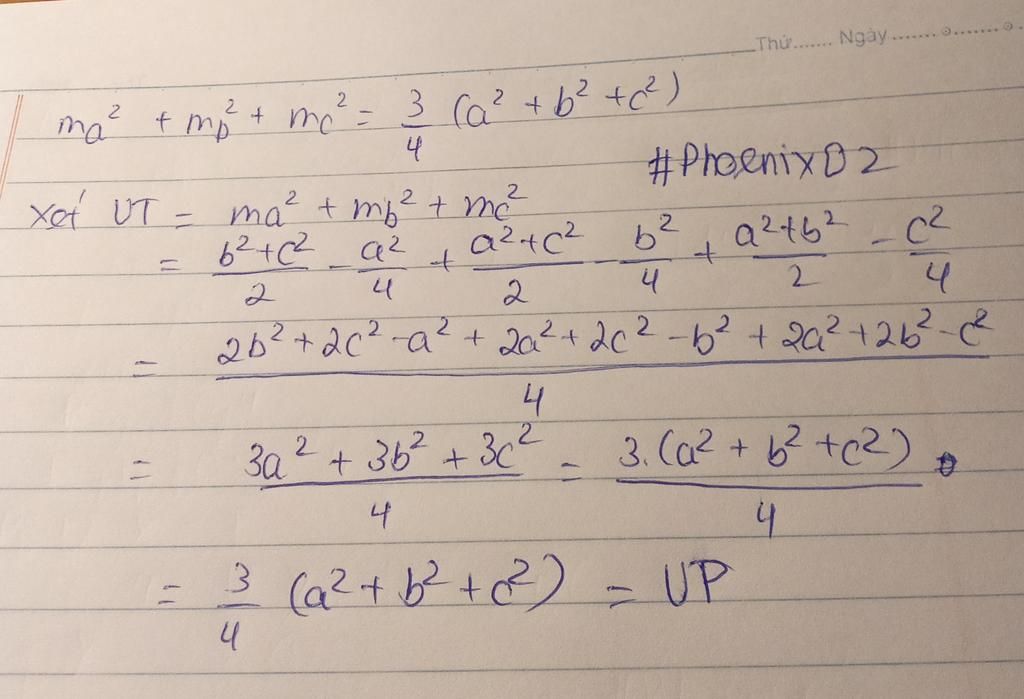 Thứ....... Ngày.................
ma² + mb² + mc² = 3/4 (a² + b² + c²)
#PhoenixD2
Xét VT = ma² + mb² + mc²
= (b²+c²)/2 - a²/4 + (a²+c²)/2 - b²/4 + (a²+b²)/2 - c²/4
= (2b²+2c²-a²+2a²+2c²-b²+2a²+2b²-c²)/4
= (3a²+3b²+3c²)/4 = 3.(a²+b²+c²)/4
= 3/4 (a²+b²+c²) = VP